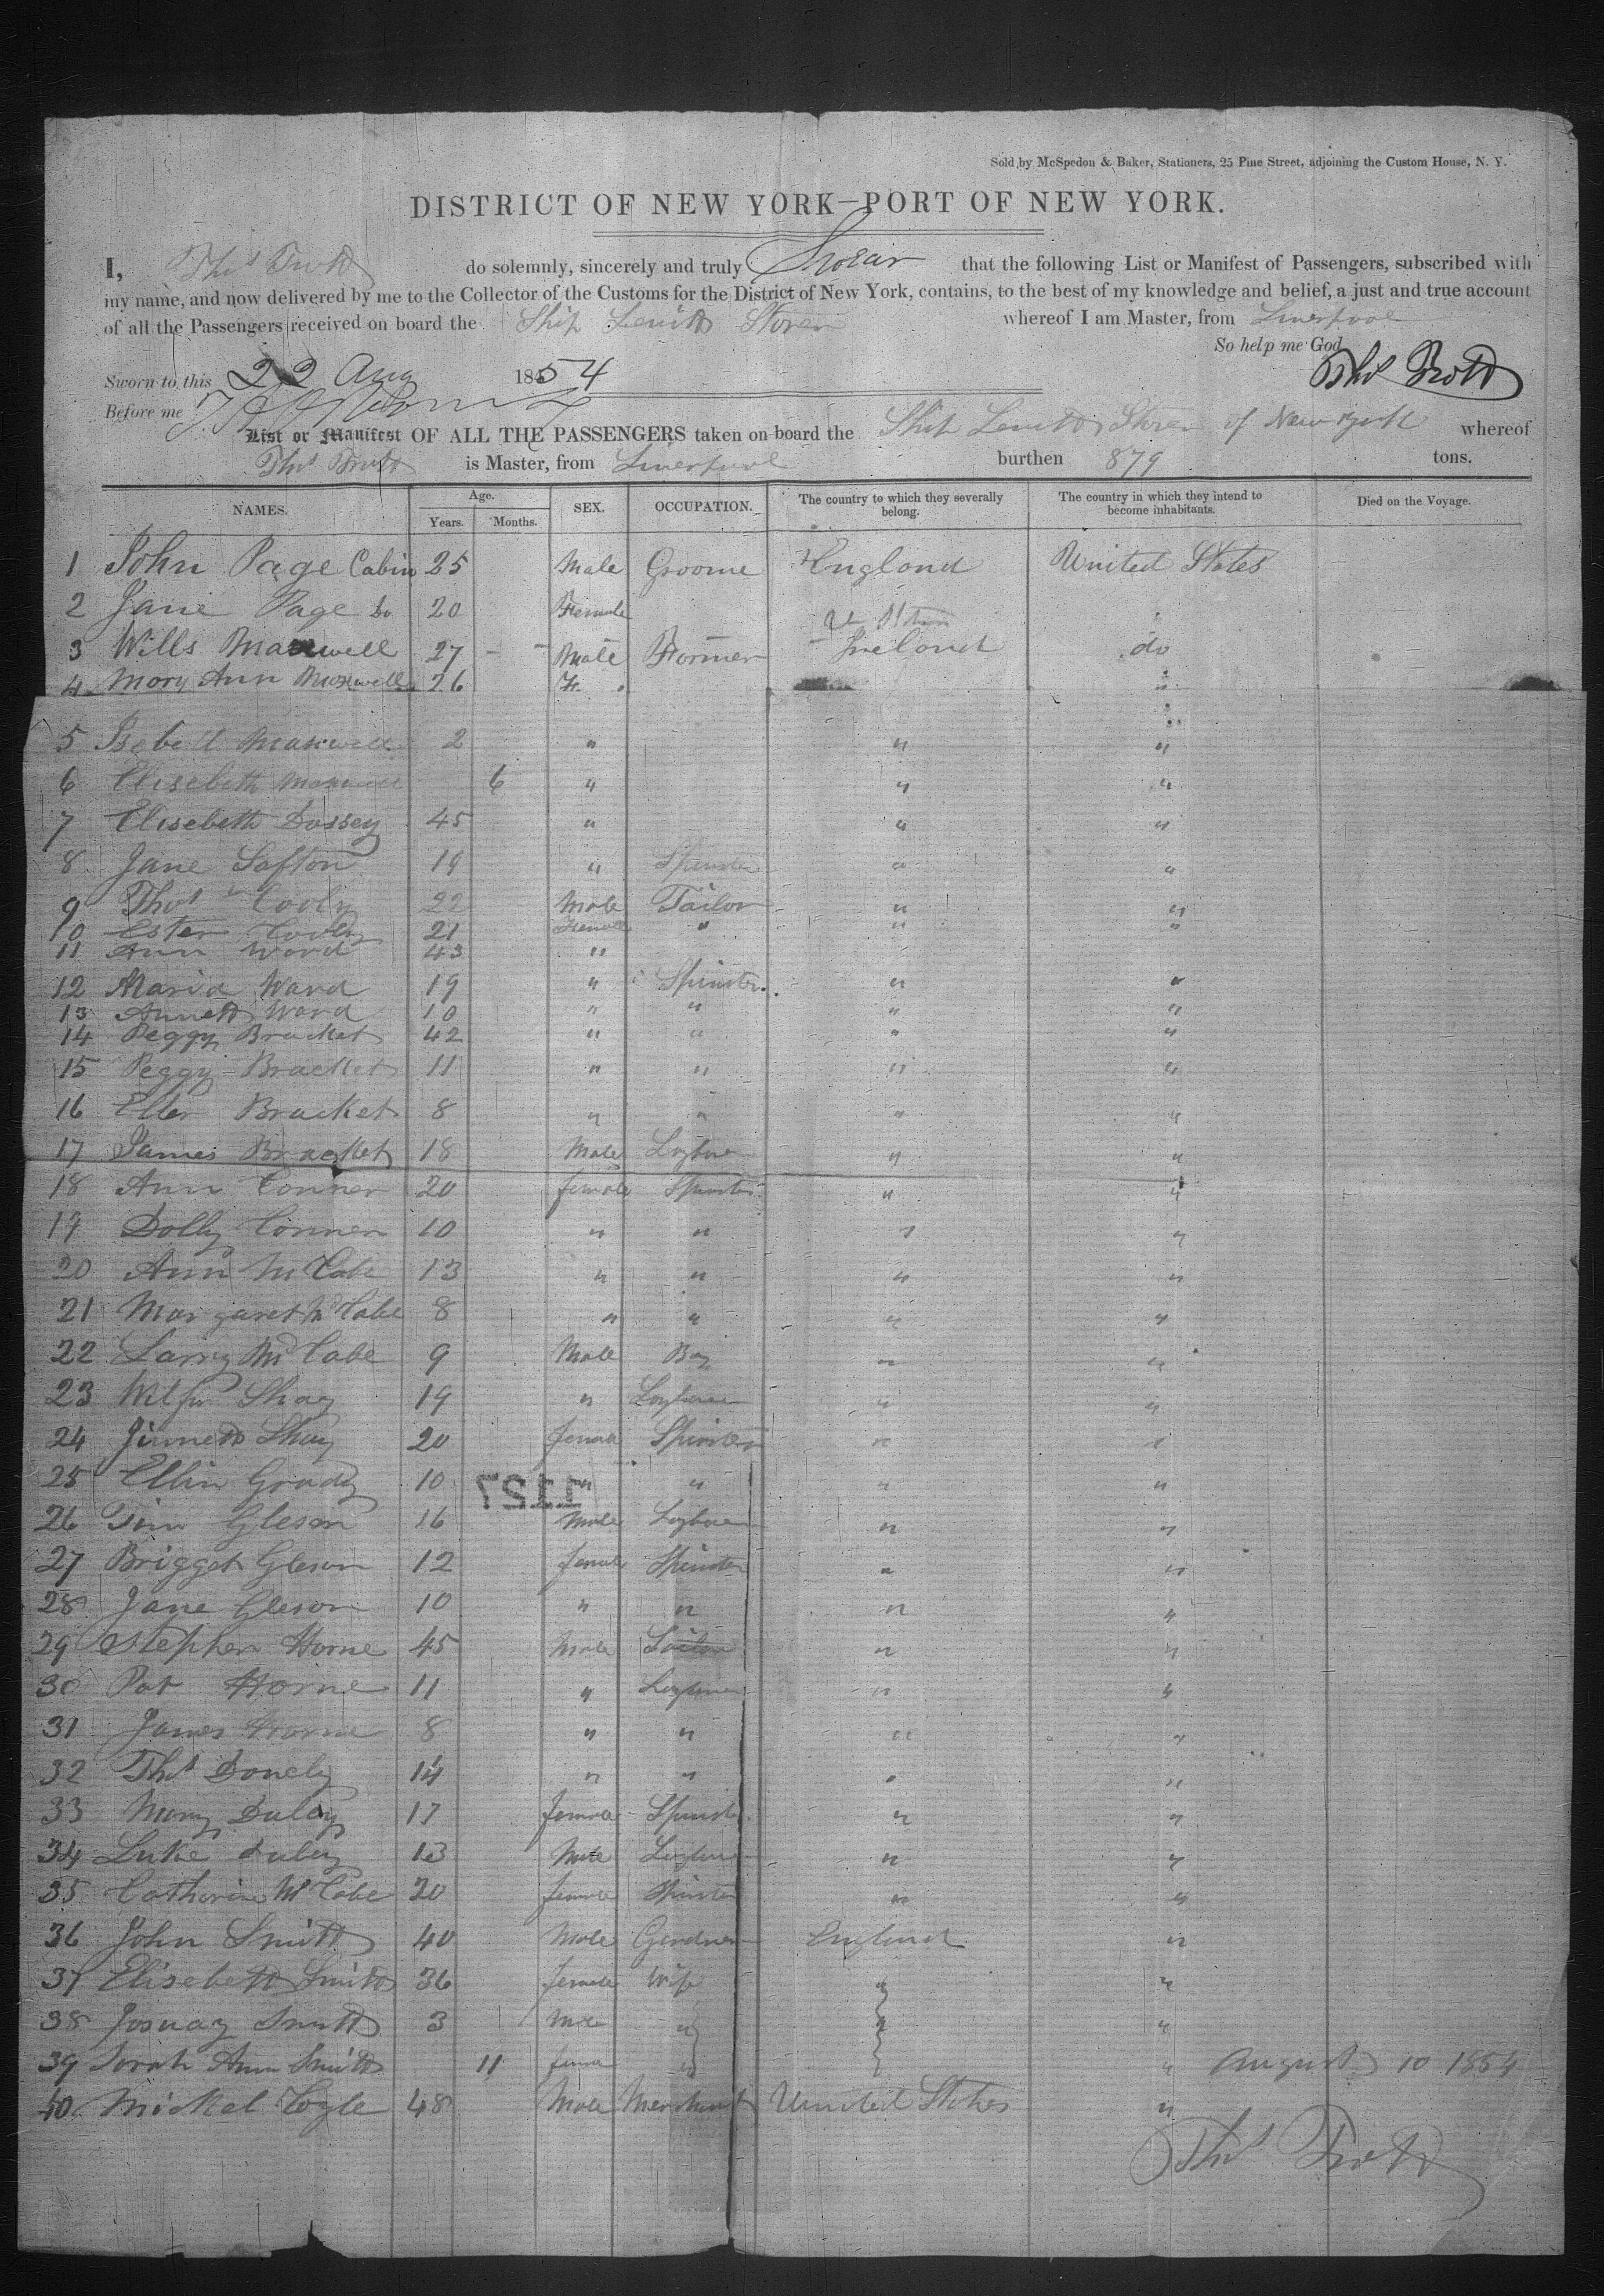 Sold by McSpedon & Baker, Stationers, 25 Pine Street, adjoining the Custom House, N. Y.
DISTRICT OF NEW YORK—PORT OF NEW YORK.
I, Thos Trott do solemnly, sincerely and truly Swear that the following List or Manifest of Passengers, subscribed with
my name, and now delivered by me to the Collector of the Customs for the District of New York, contains, to the best of my knowledge and belief, a just and true account
of all the Passengers received on board the Ship whereof I am Master, from Liverpool
So help me God
Sworn to this 22 Aug 1854 Thos Trott
Before me
List or Manifest OF ALL THE PASSENGERS taken on board the Ship of New York whereof
Thos Trott is Master, from Liverpool burthen 879 tons.
NAMES. Age. Years. Months. SEX. OCCUPATION. The country to which they severally belong. The country in which they intend to become inhabitants. Died on the Voyage.
1 John Page Cabin 25 Male Groome England United States
2 Jane Page Do 20 Female
3 Wills Maxwell 27 - - Male Farmer Ireland do
4 Mary Ann Maxwell 26 F. "
5 Isabell Maxwell 2 " " "
6 Elisebeth Maxwell 6 " " "
7 Elisebeth Dossey 45 " " "
8 Jane Safton 19 " Spinster " "
9 Thos Cooly 22 Male Tailor " "
10 Ester Cooly 21 Female " " "
11 Ann Ward 43 "
12 Maria Ward 19 " Spinster " "
13 Annett Ward 10 " " " "
14 Peggy Bracket 42 " " " "
15 Peggy Bracket 11 " " " "
16 Ellen Bracket 8 " " " "
17 James Bracket 18 Male " "
18 Ann Conner 20 female Spinster " "
19 Dolly Conner 10 " " " "
20 Ann McCabe 13 " " " "
21 Margaret McCabe 8 " " " "
22 Larry McCabe 9 Male Boy " "
23 Shay 19 " " "
24 Jinnett Shay 20 female Spinster " "
25 Ellin Grady 10 " " " "
1127
26 Tim Gleson 16 Male " "
27 Brigget Gleson 12 female Spinster " "
28 Jane Gleson 10 " " " "
29 Stephen Horne 45 Male " "
30 Pat Horne 11 " " "
31 James Horne 8 " " " "
32 Thos Donely 14 " " " "
33 Mary Duley 17 female Spinster " "
34 Luke Duley 13 Male " "
35 Catherine McCabe 20 female Spinster " "
36 John Smith 40 Male Gardner England "
37 Elisebeth Smith 36 female Wife " "
38 Josuay Smith 3 Male " " "
39 Sarah Ann Smith 11 female " " " August 10 1854
40 Mickel Coyle 48 Male Merchant United States "
Thos Trott